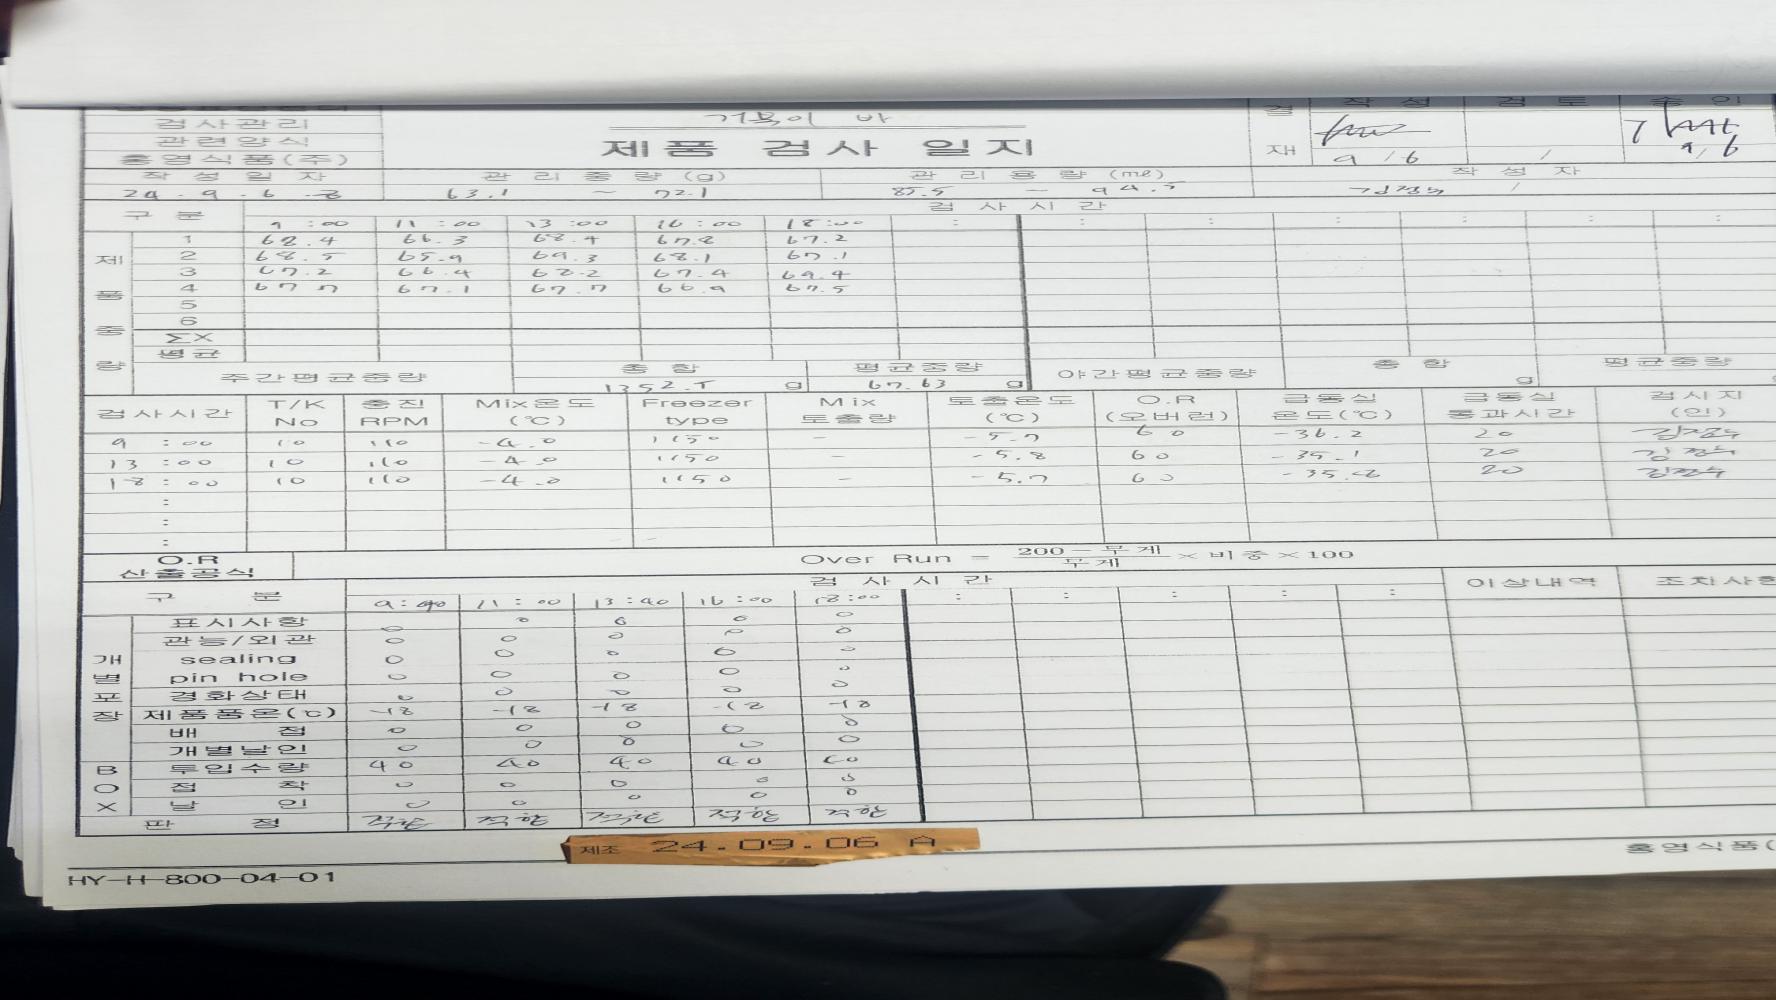 결 작성 검토 승인
검사관리
관련양식
흥영식품(주)
거북이 바
제품 검사 일지
재 9/6 / 9/6
작성일자 관리중량(g) 관리용량(㎖) 작성자
24. 9. 6. 금 63.1 ~ 72.1 85.5 ~ 94.5 /
구분 검사시간
9:00 11:00 13:00 16:00 18:00 : : : : : : :
제품중량
1 68.4 66.3 68.4 67.8 67.2
2 68.5 65.9 69.3 68.1 67.1
3 67.2 66.4 68.2 67.4 69.4
4 67.7 67.1 67.7 66.9 67.5
5
6
ΣX
평균
주간평균중량 총합 평균중량 야간평균중량 총합 평균중량
1352.5 g 67.63 g g
검사시간 T/K No 충진 RPM Mix온도 (℃) Freezer type Mix 토출량 토출온도 (℃) O.R (오버런) 급동실 온도(℃) 급동실 통과시간 검사자 (인)
9:00 10 110 -4.0 1150 - -5.7 60 -36.2 20
13:00 10 110 -4.0 1150 - -5.8 60 -35.1 20
18:00 10 110 -4.0 1150 - -5.7 60 20
:
:
:
O.R 산출공식 Over Run = (200 - 무게)/무게 × 비중 × 100
구분 검사시간 이상내역 조치사항
11:00 13:40 16:00 18:00 : : : : :
개별포장
표시사항 ○ ○ ○ ○ ○
관능/외관 ○ ○ ○ ○ ○
sealing ○ ○ ○ ○ ○
pin hole ○ ○ ○ ○ ○
경화상태 ○ ○ ○ ○ ○
제품품온(℃) -18 -18 -18 -18 -18
배점 ○ ○ ○ ○ ○
개별날인 ○ ○ ○ ○ ○
BOX
투입수량 40 40 40 40
접착 ○ ○ ○ ○ ○
날인 ○ ○ ○ ○ ○
판정 적합 적합 적합 적합 적합
제조 24.09.06 A
HY-H-800-04-01
흥영식품(